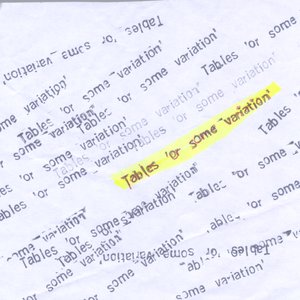 Tables 'or some variation'
some variation'
Tables 'or some variation'
Tables 'or some variation'
Tables 'or some
Tables 'or some variation'
Tables 'or some variation'
Tables 'or some variation'
Tables 'or some variation'
Tables
Tables 'or some variation'
Tables 'or some variation'
Tables 'or
Tables 'or some variation'
Tables 'or some
some variation'
Tables 'or some variation'
some variation'